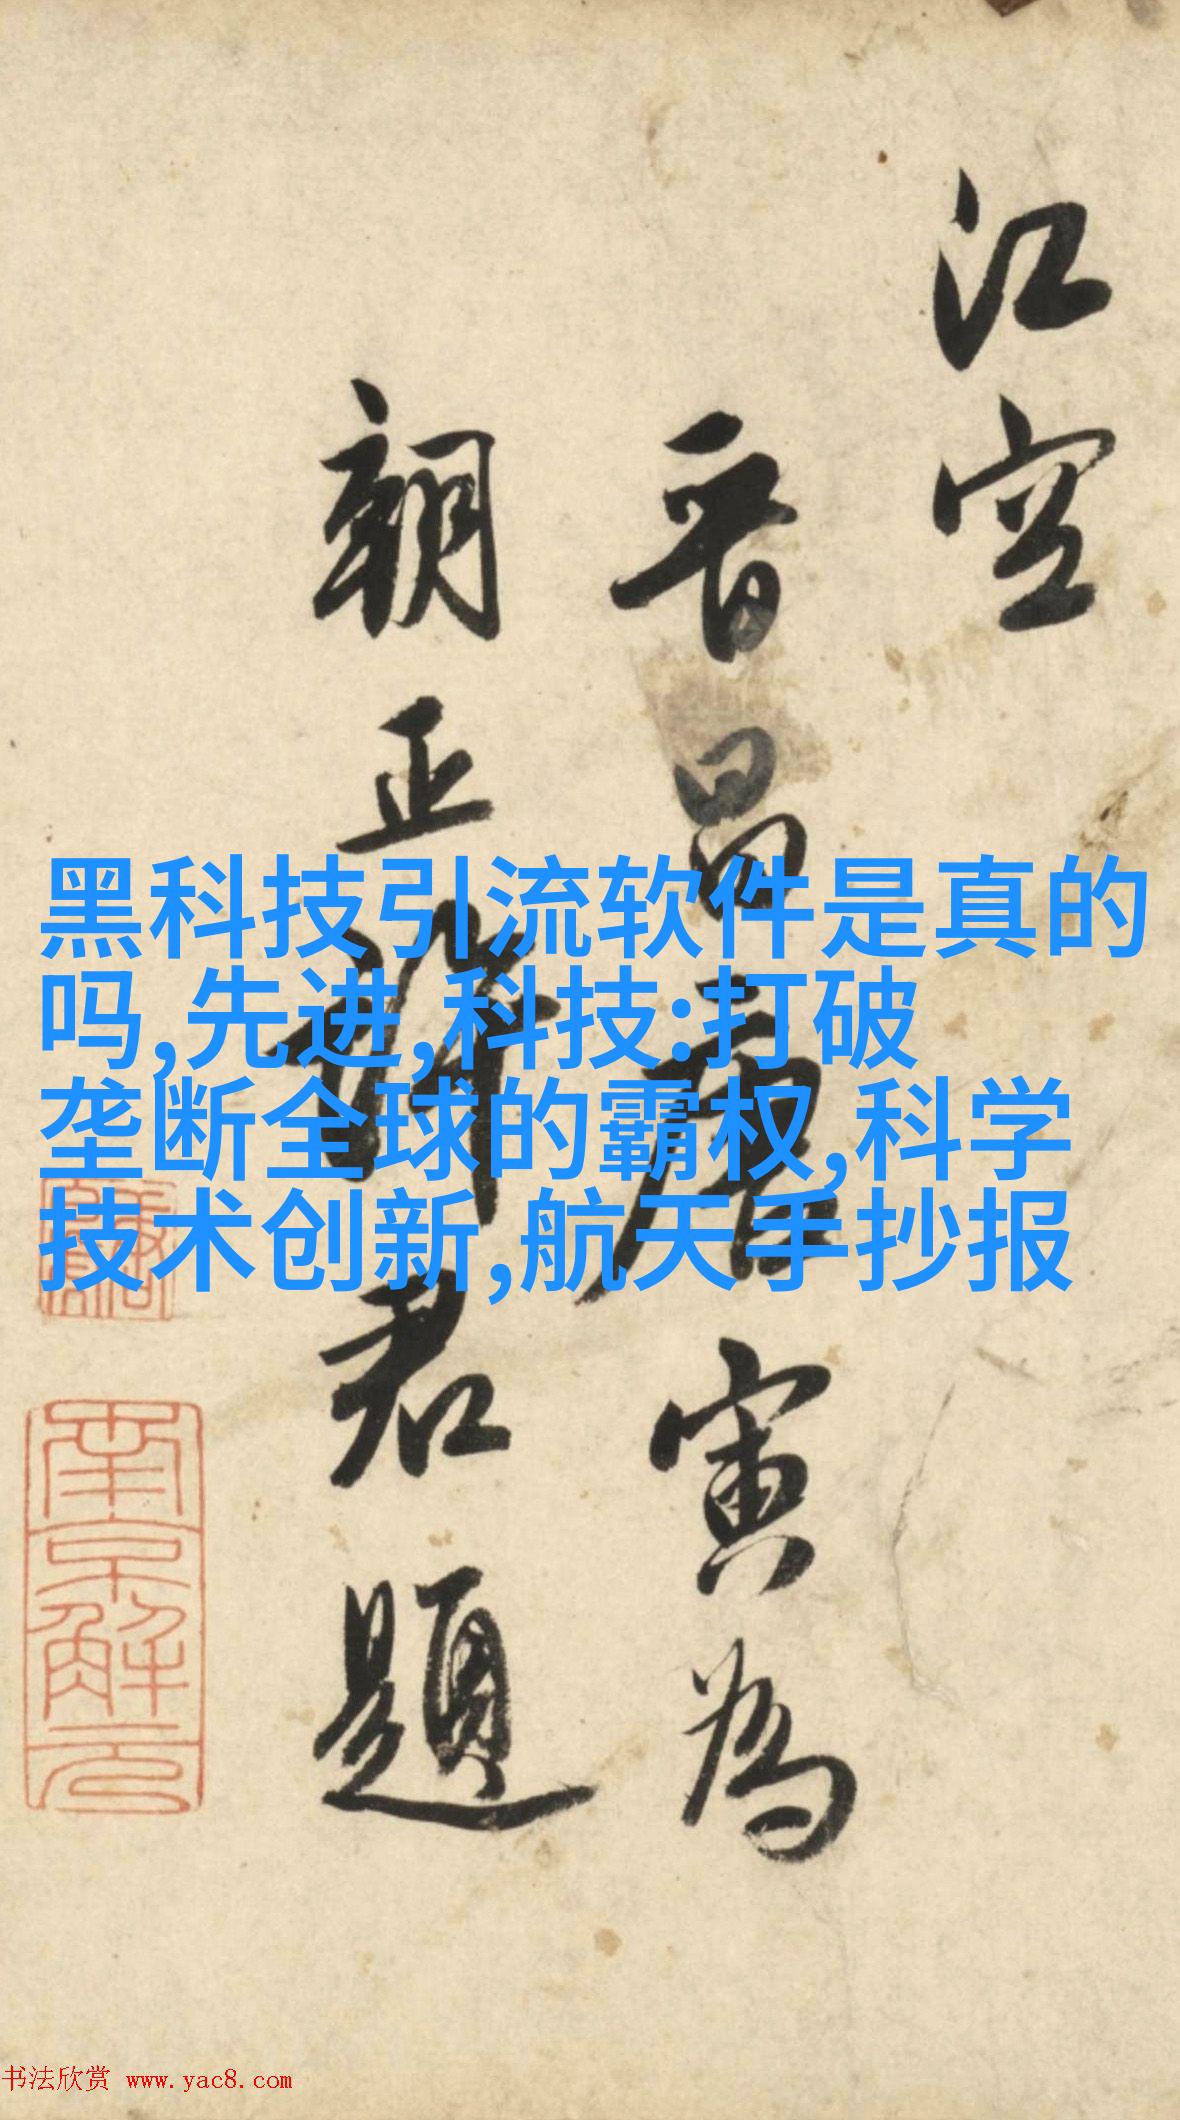 江空
晋昌唐寅为
朝正许君题
黑科技引流软件是真的
吗,先进,科技:打破
垄断全球的霸权,科学
技术创新,航天手抄报
南京解元
书法欣赏 www.yac8.com